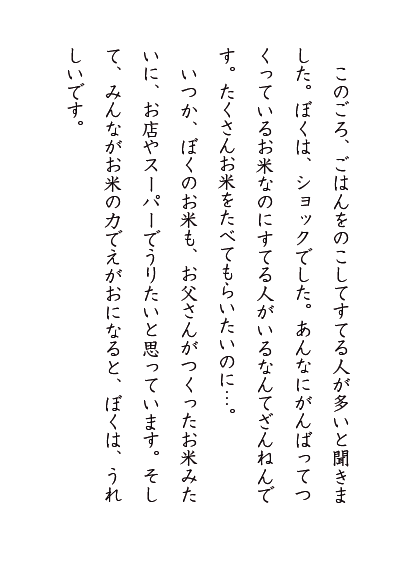 このごろ、ごはんをのこしてすてる人が多いと聞きま
した。ぼくは、ショックでした。あんなにがんばってつ
くっているお米なのにすてる人がいるなんてざんねんで
す。たくさんお米をたべてもらいたいのに…。
いつか、ぼくのお米も、お父さんがつくったお米みた
いに、お店やスーパーでうりたいと思っています。そし
て、みんながお米の力でえがおになると、ぼくは、うれ
しいです。